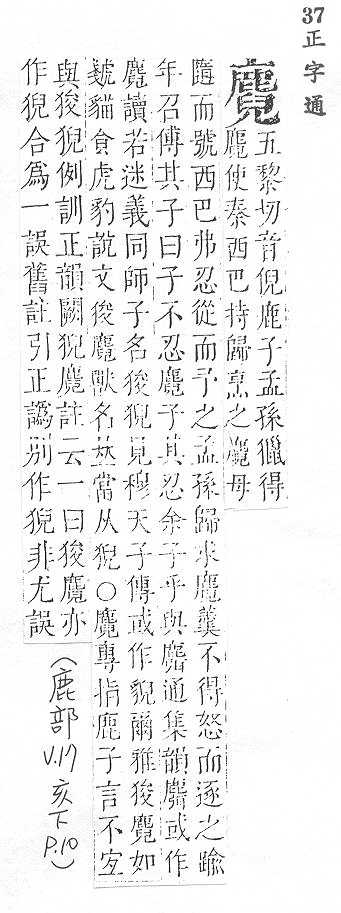 37正字通
麑
五黎切音倪鹿子孟孫獵得
麑使秦西巴持歸烹之麑母
隨而號西巴弗忍從而予之孟孫歸求麑羹不得怒而逐之踰
年召傅其子曰子不忍麑子其忍余子乎與麛通集韻麛或作
麑讀若迷義同師子名狻猊見穆天子傳或作貎爾雅狻麑如
虦貓食虎豹說文狻麑獸名𠀤當从猊○麑專指鹿子言不宜
與狻猊例訓正韻闕猊麑註云一曰狻麑亦
作猊合爲一誤舊註引正譌別作猊非尤誤
(鹿部
V.17
亥下
P.10)